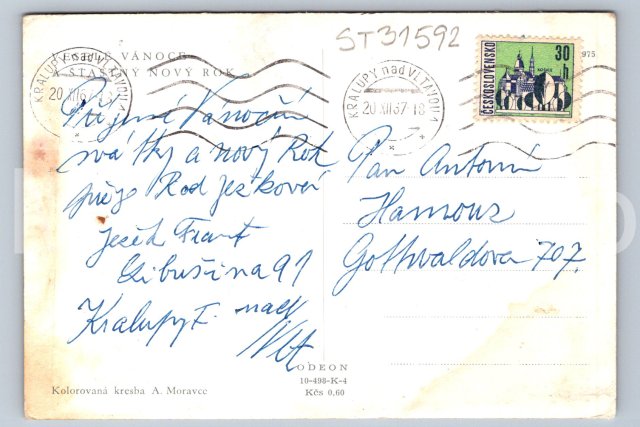 ST31592
VESELÉ VÁNOCE
A ŠŤASTNÝ NOVÝ ROK
KRALUPY nad VLTAVOU
20.XII.67
KRALUPY nad VLTAVOU
20.XII.67-18
ČESKOSLOVENSKO
30 h
975
Příjemné Vánoční
svátky a nový Rok
přeje Rod Ježkovi
Frant
Libušina 91
Kralupy nad
Vlt
Pan Antonín
Hamouz
Gothvaldova 707.
ODEON
10-498-K-4
Kčs 0,60
Kolorovaná kresba A. Moravce